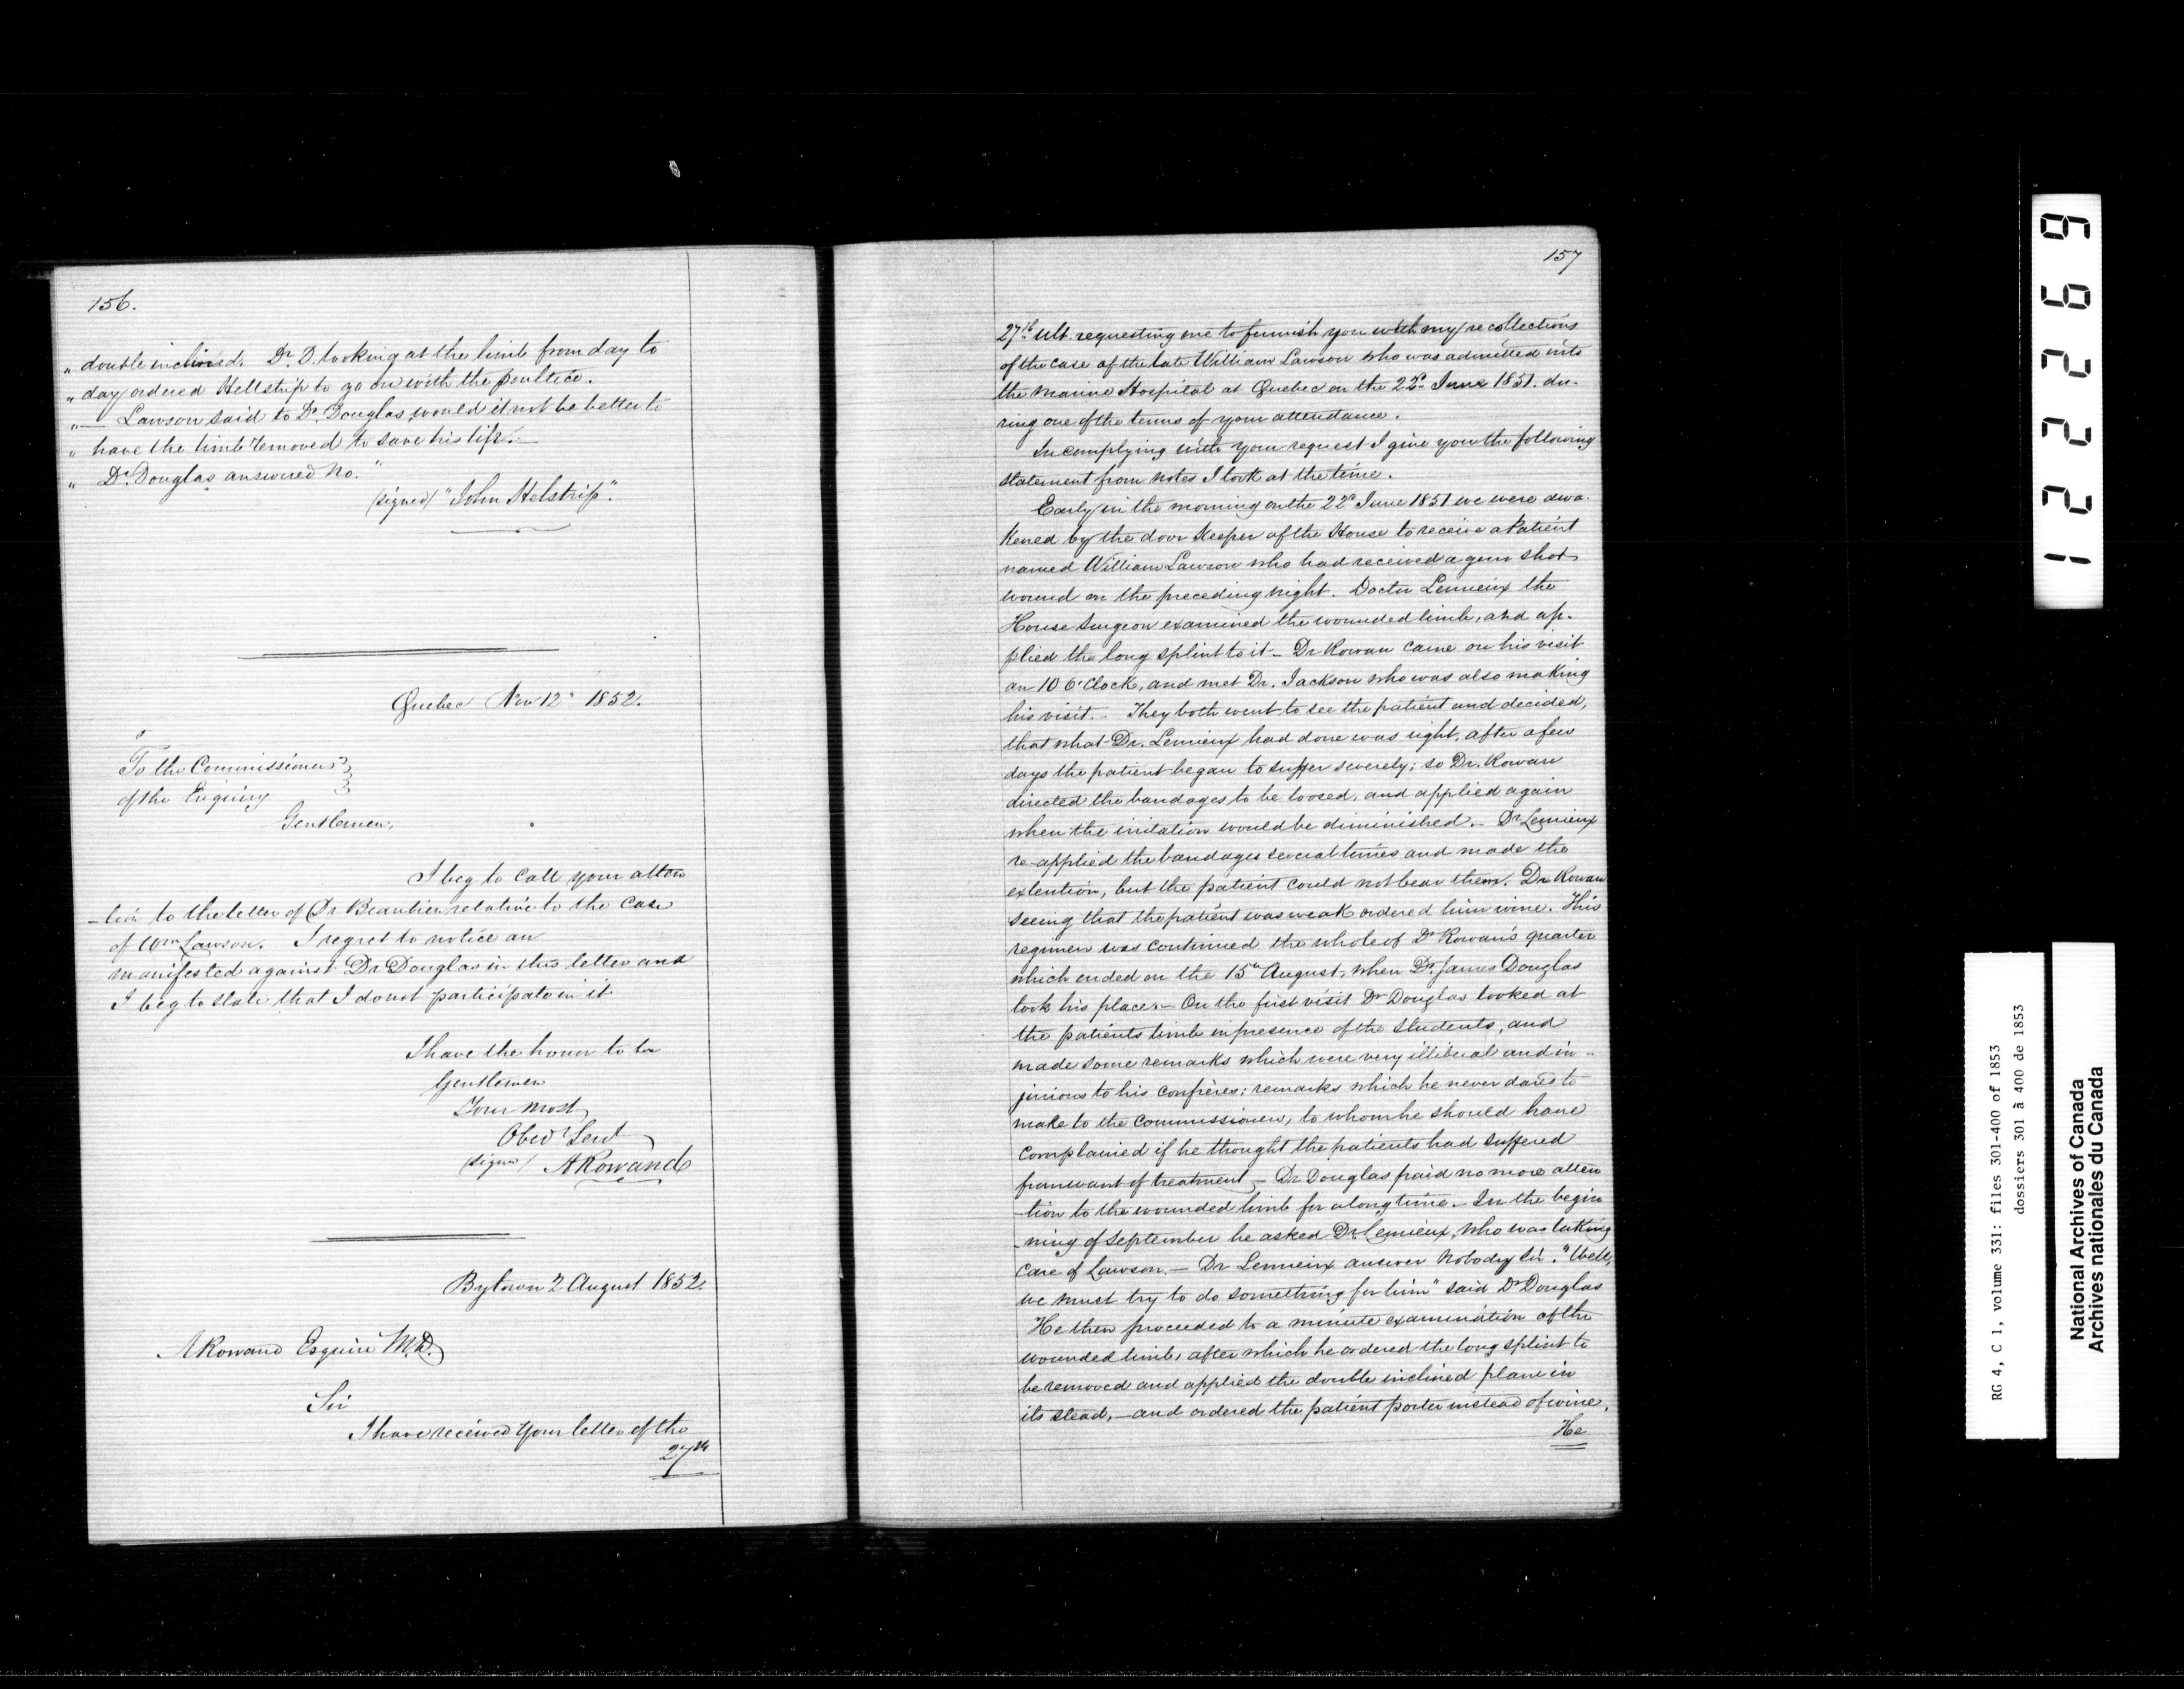 156.
" double inclined. Dr. D. looking at the limb from day to
" day ordered Hellstrip to go on with the poultice.
" — Lawson said to Dr. Douglas, would it not be better to
" have the limb removed to save his life. —
" Dr. Douglas answered No."
(signed) "John Helstrip".
Quebec Nov 12th 1852.
To the Commissioners
of the Enquiry
Gentlemen,
I beg to call your atten
-tion to the letter of Dr Beaubien relative to the case
of Wm Lawson. I regret to notice an
manifested against Dr Douglas in this letter and
I beg to state that I do not participate in it
I have the honor to be
Gentlemen
Your Most
Obed Servt
(signed) A Rowand
Bytown 2 August 1852.
A Rowand Esquire M.D.
Sir
I have received your letter of the
27th
157
27th ult. requesting me to furnish you with my recollections
of the case of the late William Lawson who was admitted into
the Marine Hospital at Quebec on the 22d June 1851. du-
ring one of the terms of your attendance.
In complying with your request I give you the following
statement from notes I took at the time.
Early in the morning on the 22d June 1851 we were awa-
kened by the door Keeper of the House to receive a Patient
named William Lawson who had received a gun shot
wound on the preceding night. Doctor Lemieux the
House Surgeon examined the wounded limb, and ap-
plied the long splint to it — Dr Rowan came on his visit
an 10 O'Clock, and met Dr. Jackson who was also making
his visit. — They both went to see the patient and decided,
that what Dr. Lemieux had done was right, after a few
days the patient began to suffer severely; so Dr. Rowan
directed the bandages to be loosed, and applied again
when the irritation would be diminished. — Dr Lemieux
re-applied the bandages several times and made the
extention, but the patient could not bear them. Dr Rowan
seeing that the patient was weak ordered him wine. This
regimen was continued the whole of Dr Rowan's quarter
which ended on the 15th August, when Dr. James Douglas
took his place. — On the first visit Dr Douglas looked at
the patients limb in presence of the students, and
made some remarks which were very illiberal and in-
jurious to his confrères; remarks which he never dared to
make to the commissioners, to whom he should have
complained if he thought the patients had suffered
from want of treatment — Dr Douglas paid no more atten
-tion to the wounded limb for a long time. — In the begin
-ning of September he asked Dr Lemieux, who was taking
care of Lawson. — Dr Lemieux answer Nobody Sir. "Well,
we must try to do something for him" said Dr Douglas
He then proceeded to a minute examination of the
wounded limb, after which he ordered the long splint to
be removed and applied the double inclined plane in
its stead, — and ordered the patient porter instead of wine.
He
122269
RG 4, C 1, volume 331: files 301-400 of 1853
dossiers 301 à 400 de 1853
National Archives of Canada
Archives nationales du Canada